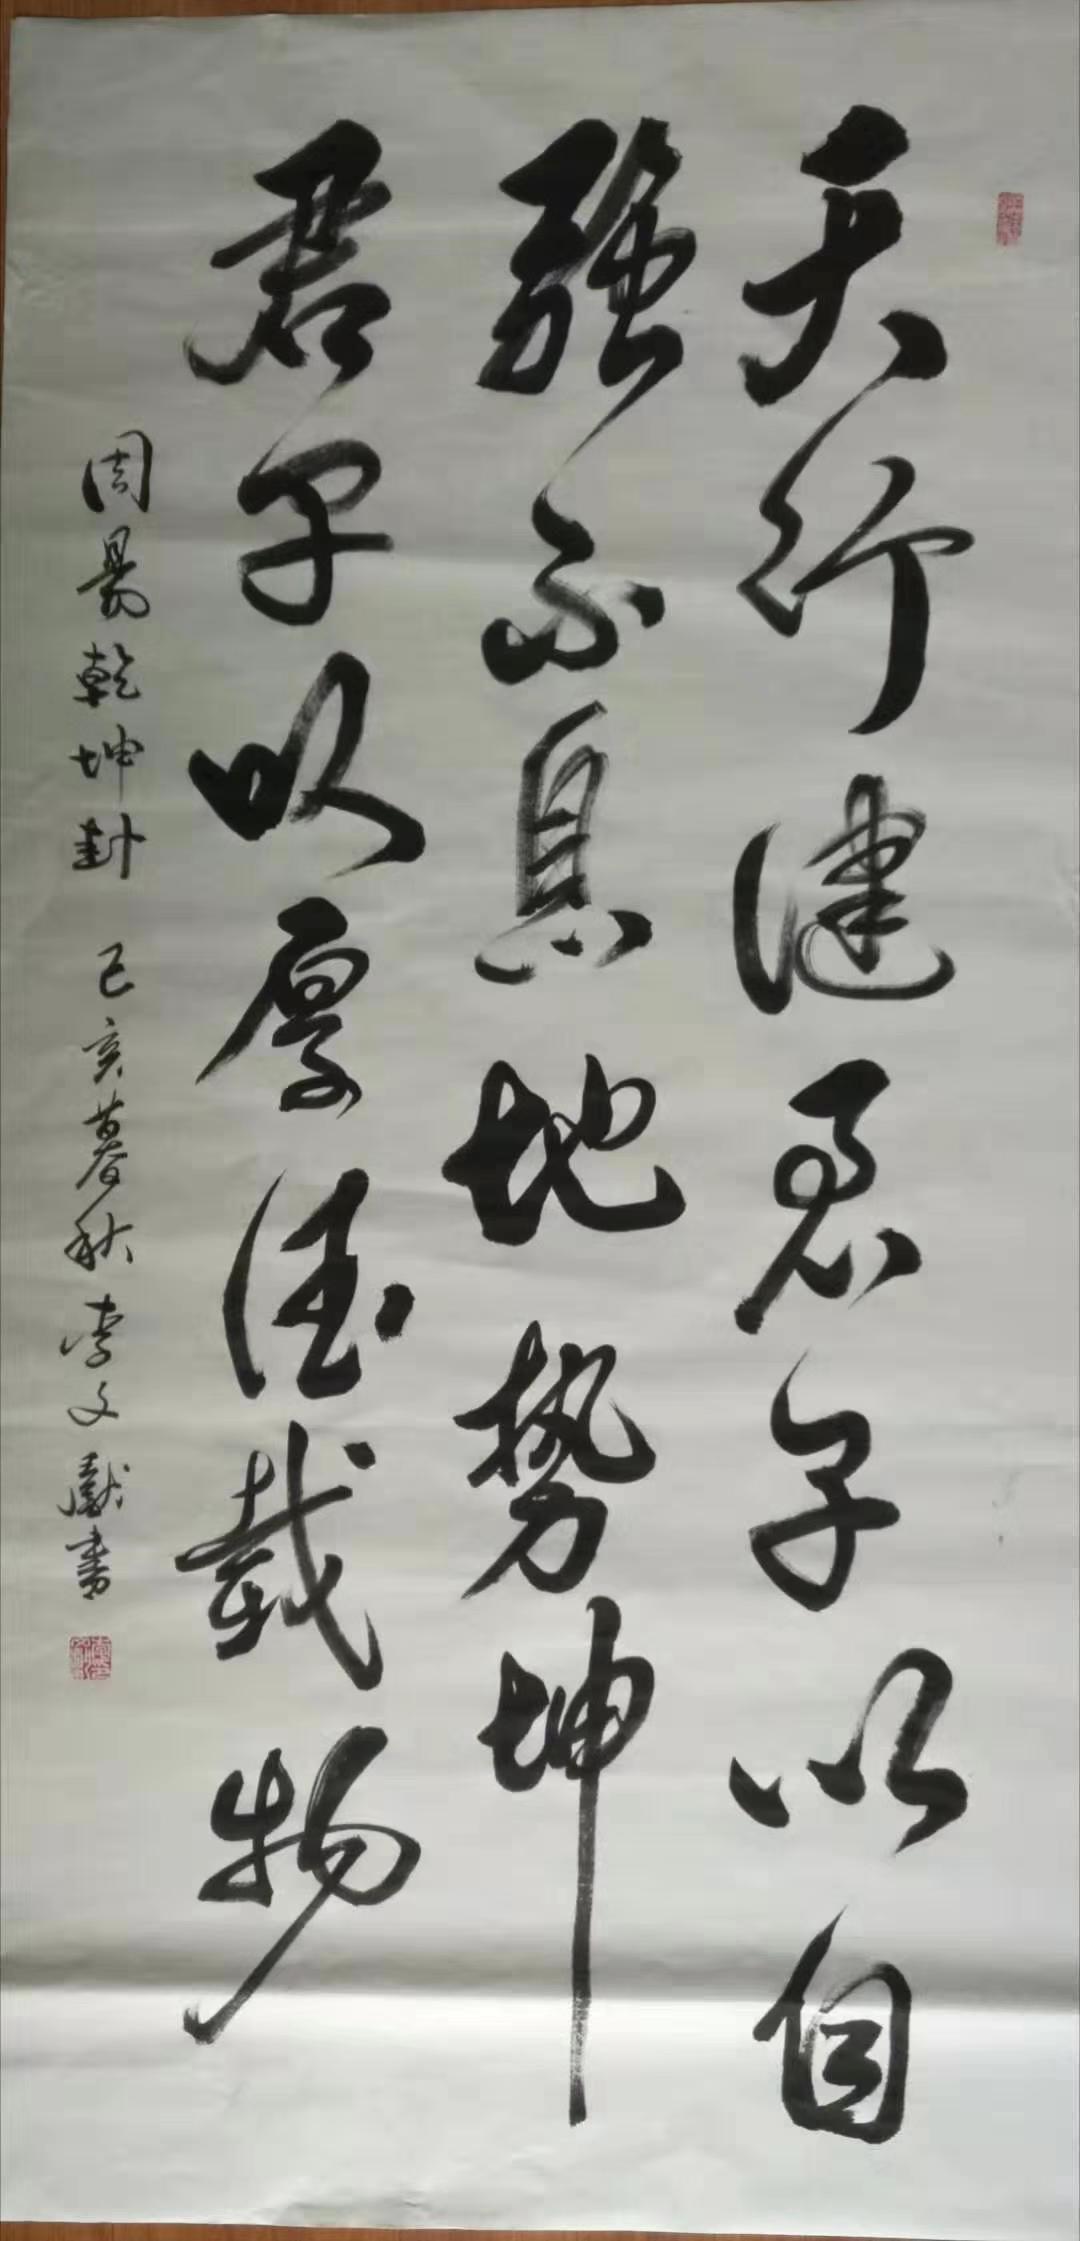 天行健君子以自
強不息地勢坤
君子以厚德載物
周易乾坤卦 己亥暮秋李文献書